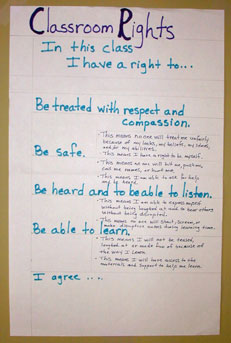 Classroom Rights
In this class
I have a right to...
Be treated with respect and
compassion.
• This means no one will treat me unfairly
because of my looks, my beliefs, my
and/or my abilities.
• This means I have a right to be myself.
Be safe.
• This means no one will hit me, push me,
call me names, or hurt me.
• This means I am able to ask for help
Be heard and to be able to listen.
• This means I am able to express myself
without being laughed at and to hear others
without being disrupted.
• This means no one will shout, scream, or
make disruptive noises during learning time.
Be able to learn.
• This means I will not be teased,
laughed at or made fun of because of
the way I learn.
• This means I will have access to the
materials and support to help me learn.
I agree ....